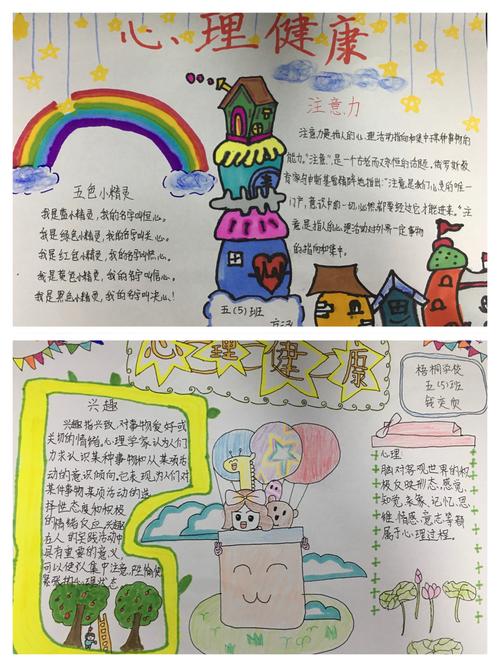 心理健康
五色小精灵
我是蓝小精灵，我的名字叫恒心。
我是绿色小精灵，我的名字叫关心。
我是红色小精灵，我的名字叫热心。
我是黄色小精灵，我的名字叫信心。
我是黑色小精灵，我的名字叫决心！
注意力
注意力是指人的心理活动指向和集中于某种事物的
能力。“注意”，是一个古老而又永恒的话题。俄罗斯教
育家乌申斯基曾精辟地指出：“注意是我们心灵的唯一
门户，意识中的一切，必然都要经过它才能进来。”注
意是指人的心理活动对外界一定事物
的指向和集中。
五(5)班
心理健康
梧桐学校
五(5)班
兴趣
兴趣指兴致，对事物爱好或
关切的情绪。心理学家认为人们
力求认识某种事物和从某项活
动的意识倾向。它表现为人们对
某件事物某项活动的选
择性态度和积极
的情绪反应。兴趣
在人的实践活动中
具有重要的意义，
可以使人集中注意，产生愉快
紧张的心理状态
心理
脑对客观世界的积
极反映形态，感觉、
知觉、表象、记忆、思
维、情感、意志等都
属于心理过程。